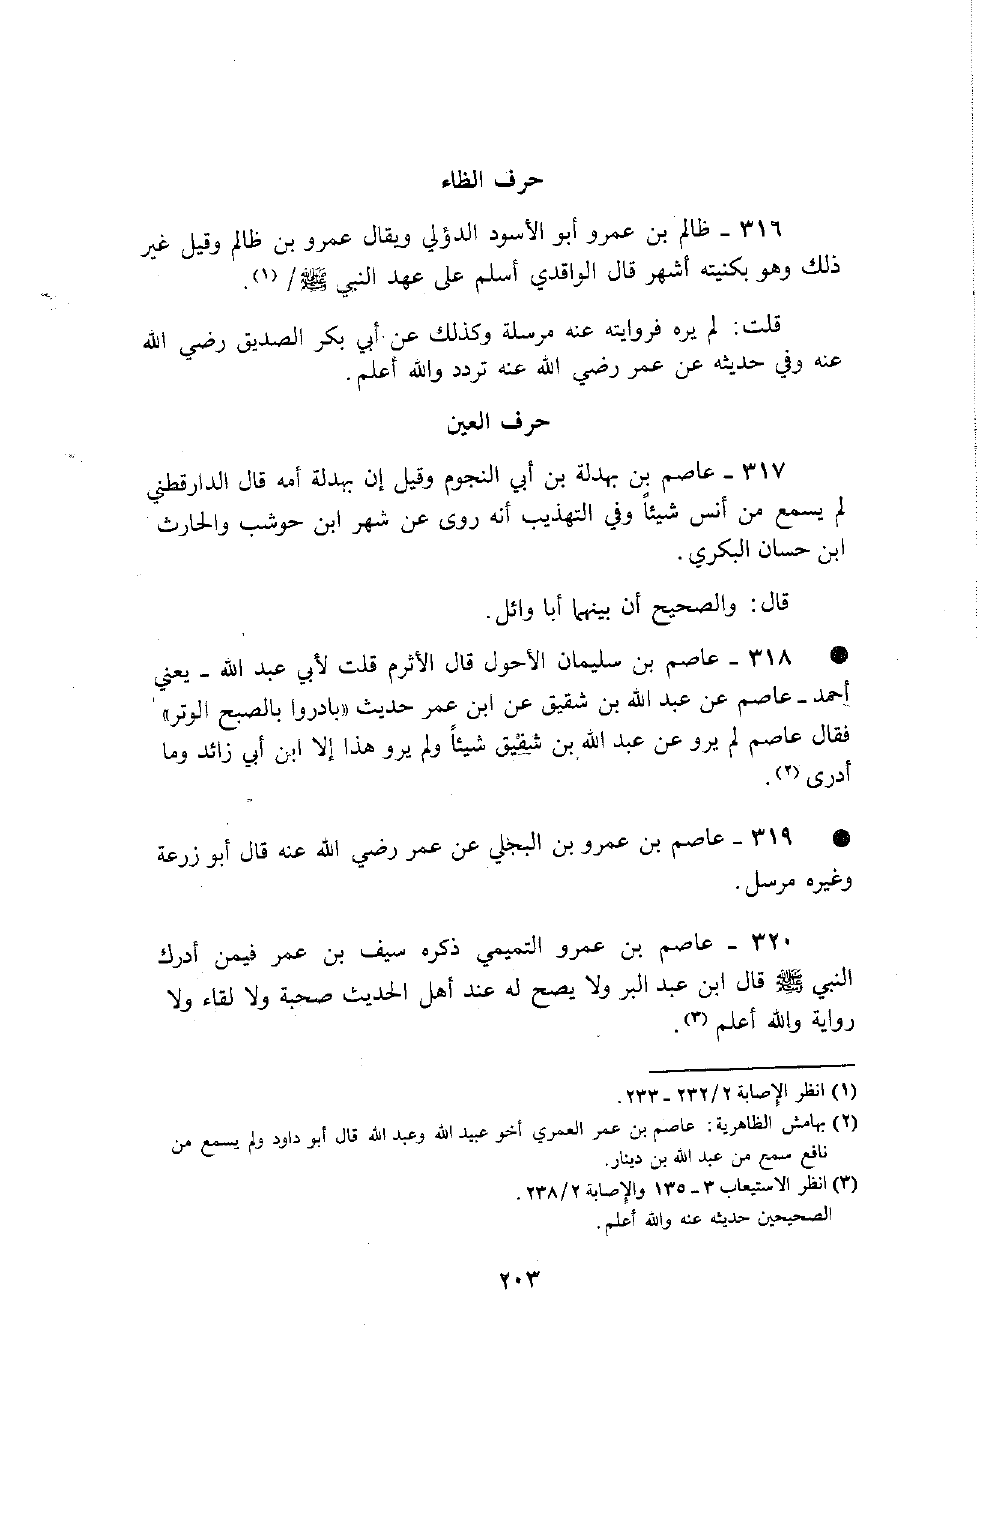 حرف الظاء
٣١٦ ـ ظالم بن عمرو أبو الأسود الدؤلي ويقال عمرو بن ظالم وقيل غير
ذلك وهو بكنيته أشهر قال الواقدي أسلم على عهد النبي ﷺ / (١).
قلت: لم يره فروايته عنه مرسلة وكذلك عن أبي بكر الصديق رضي الله
عنه وفي حديثه عن عمر رضي الله عنه تردد والله أعلم.
حرف العين
٣١٧ ـ عاصم بن بهدلة بن أبي النجوم وقيل إن بهدلة أمه قال الدارقطني
لم يسمع من أنس شيئاً وفي التهذيب أنه روى عن شهر ابن حوشب والحارث
ابن حسان البكري.
قال: والصحيح أن بينهما أبا وائل.
● ٣١٨ ـ عاصم بن سليمان الأحول قال الأثرم قلت لأبي عبد الله ـ يعني
أحمد ـ عاصم عن عبد الله بن شقيق عن ابن عمر حديث «بادروا بالصبح الوتر»
فقال عاصم لم يرو عن عبد الله بن شقيق شيئاً ولم يرو هذا إلا ابن أبي زائد وما
أدرى (٢).
● ٣١٩ ـ عاصم بن عمرو بن البجلي عن عمر رضي الله عنه قال أبو زرعة
وغيره مرسل.
٣٢٠ ـ عاصم بن عمرو التميمي ذكره سيف بن عمر فيمن أدرك
النبي ﷺ قال ابن عبد البر ولا يصح له عند أهل الحديث صحبة ولا لقاء ولا
رواية والله أعلم (٣).
(١) انظر الإصابة ٢/ ٢٣٢ ـ ٢٣٣.
(٢) بهامش الظاهرية: عاصم بن عمر العمري أخو عبيد الله وعبد الله قال أبو داود ولم يسمع من
نافع سمع من عبد الله بن دينار.
(٣) انظر الاستيعاب ٣ ـ ١٣٥ والإصابة ٢/ ٢٣٨.
الصحيحين حديثه عنه والله أعلم.
٢٠٣